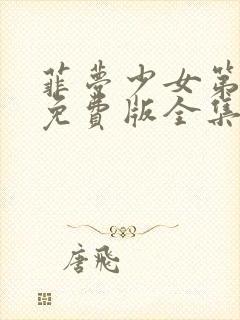 菲梦少女第
免費版全集
唐飛